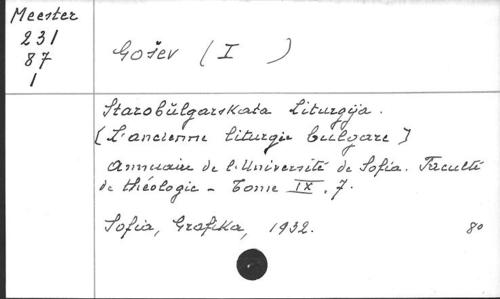 Meester
231
87
1
Gošev (I )
Starobŭlgarskata Liturgija.
[L'ancienne liturgie bulgare]
Annuaire de l'Université de Sofia. Faculté
de théologie - Tome IX, 7.
Sofia, Grafika, 1932. 80